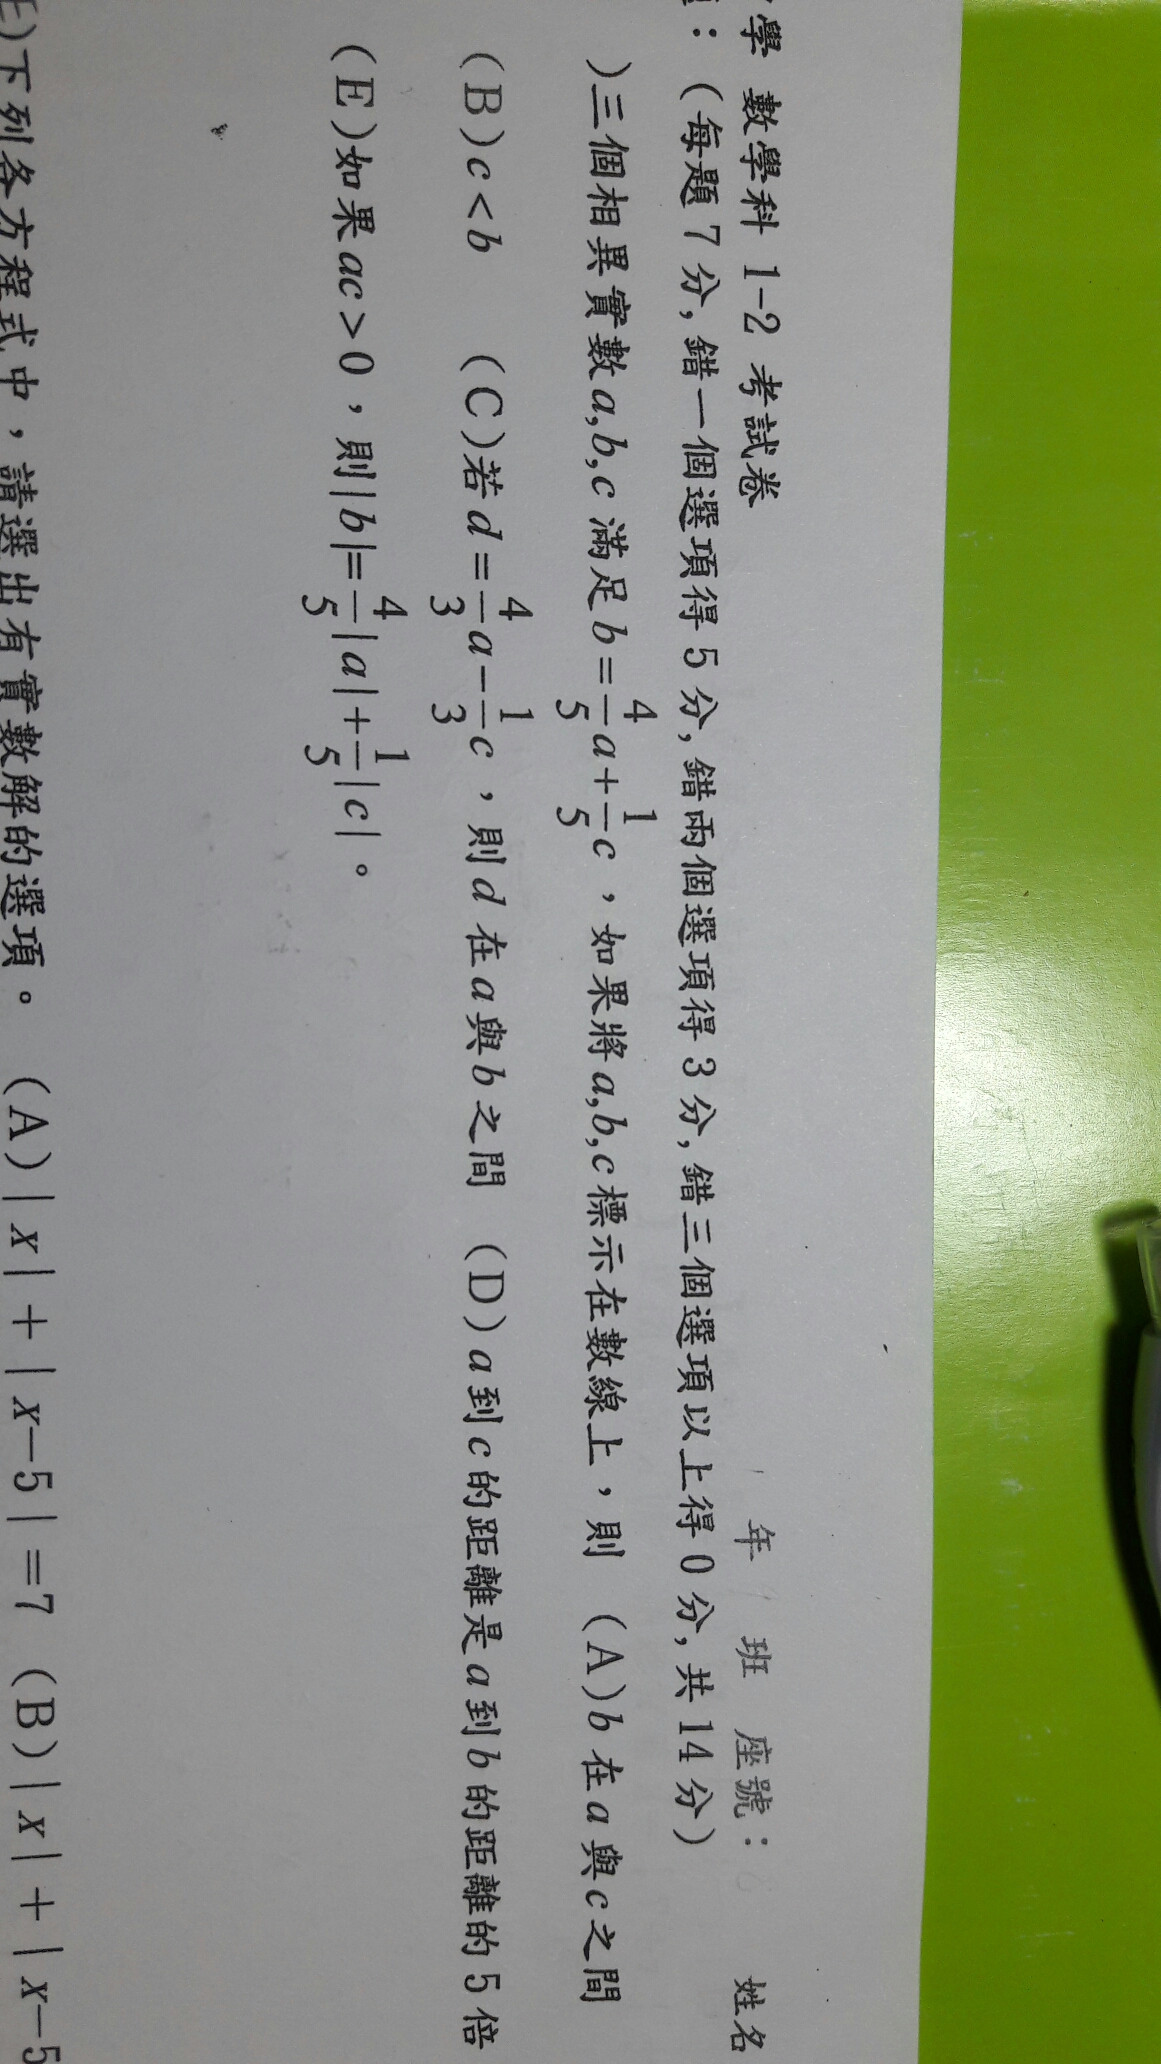 學 數學科 1-2 考試卷 年 班 座號： 姓名
：（每題 7 分, 錯一個選項得 5 分, 錯兩個選項得 3 分, 錯三個選項以上得 0 分, 共 14 分）
)三個相異實數a,b,c 滿足 b=4/5a+1/5c，如果將a,b,c標示在數線上，則 (A)b 在a 與c之間
(B)c<b (C)若d=4/3a-1/3c，則d 在a與b之間 (D)a到c的距離是a到b的距離的5倍
(E)如果ac>0，則|b|=4/5|a|+1/5|c|。
)下列各方程式中，請選出有實數解的選項。 (A)|x|+|x-5|=7 (B)|x|+|x-5